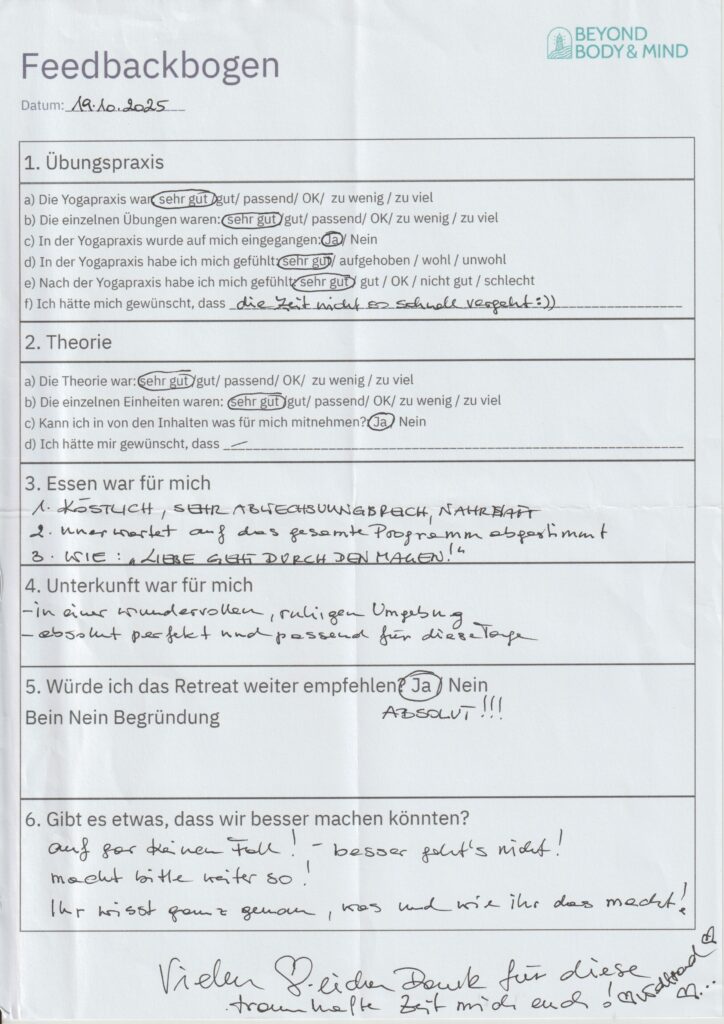 BEYOND
BODY & MIND
Feedbackbogen
Datum: 19.10.2025
1. Übungspraxis
a) Die Yogapraxis war sehr gut /gut/ passend/ OK/ zu wenig / zu viel
b) Die einzelnen Übungen waren: sehr gut /gut/ passend/ OK/ zu wenig / zu viel
c) In der Yogapraxis wurde auf mich eingegangen: Ja / Nein
d) In der Yogapraxis habe ich mich gefühlt: sehr gut / aufgehoben / wohl / unwohl
e) Nach der Yogapraxis habe ich mich gefühlt: sehr gut / gut / OK / nicht gut / schlecht
f) Ich hätte mich gewünscht, dass die Zeit nicht so schnell vergeht :))
2. Theorie
a) Die Theorie war: sehr gut /gut/ passend/ OK/ zu wenig / zu viel
b) Die einzelnen Einheiten waren: sehr gut /gut/ passend/ OK/ zu wenig / zu viel
c) Kann ich in von den Inhalten was für mich mitnehmen? Ja / Nein
d) Ich hätte mir gewünscht, dass —
3. Essen war für mich
1. KÖSTLICH, SEHR ABWECHSLUNGSREICH, NAHRHAFT
2. unerwartet auf das gesamte Programm abgestimmt
3. WIE: „LIEBE GEHT DURCH DEN MAGEN!"
4. Unterkunft war für mich
- in einer wundervollen, ruhigen Umgebung
- absolut perfekt und passend für diese Tage
5. Würde ich das Retreat weiter empfehlen? Ja / Nein
Bein Nein Begründung ABSOLUT!!!
6. Gibt es etwas, dass wir besser machen könnten?
auf gar keinen Fall! - besser geht's nicht!
macht bitte weiter so!
Ihr wisst ganz genau, was und wie ihr das macht!
Vielen ♡-lichen Dank für diese
traumhafte Zeit mit euch!